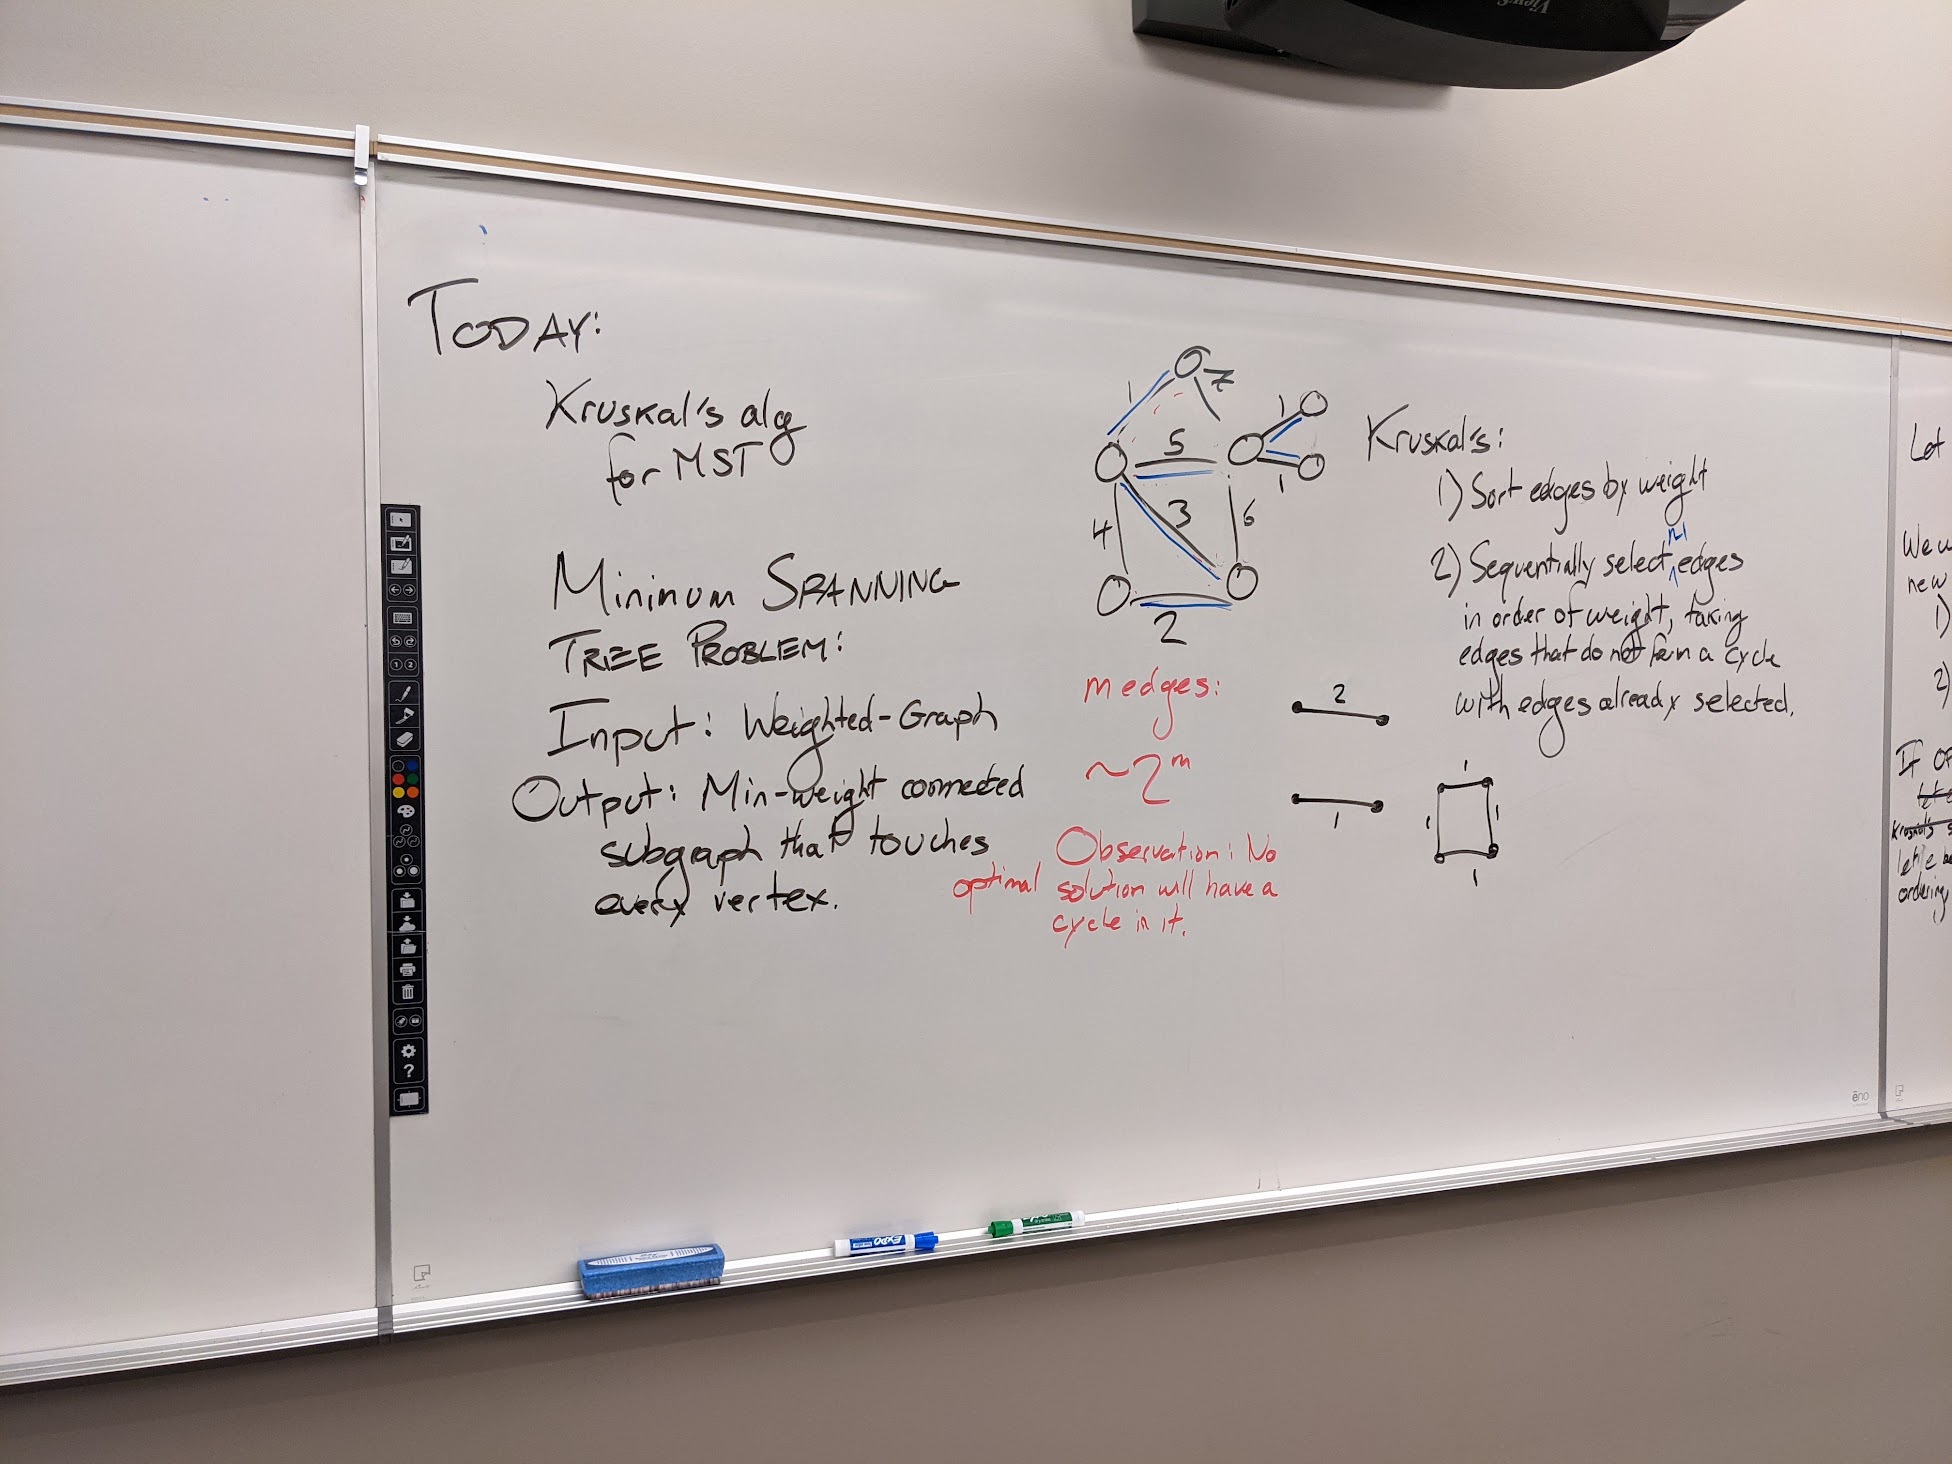 TODAY:
Kruskal's alg
for MST
MININUM SPANNING
TREE PROBLEM:
Input: Weighted-Graph
Output: Min-weight connected
subgraph that touches
every vertex.
1
7
5
1
1
4
3
6
2
m edges:
~2^m
Observation: No
optimal solution will have a
cycle in it.
Kruskal's:
1) Sort edges by weight
n-1
2) Sequentially select edges
in order of weight, taking
edges that do not form a cycle
with edges already selected.
2
1
1
1
1
1
Let
We
new
1)
2)
If
Kruskal's
let e be
ordering,
EXPO
ēno
?
1 2